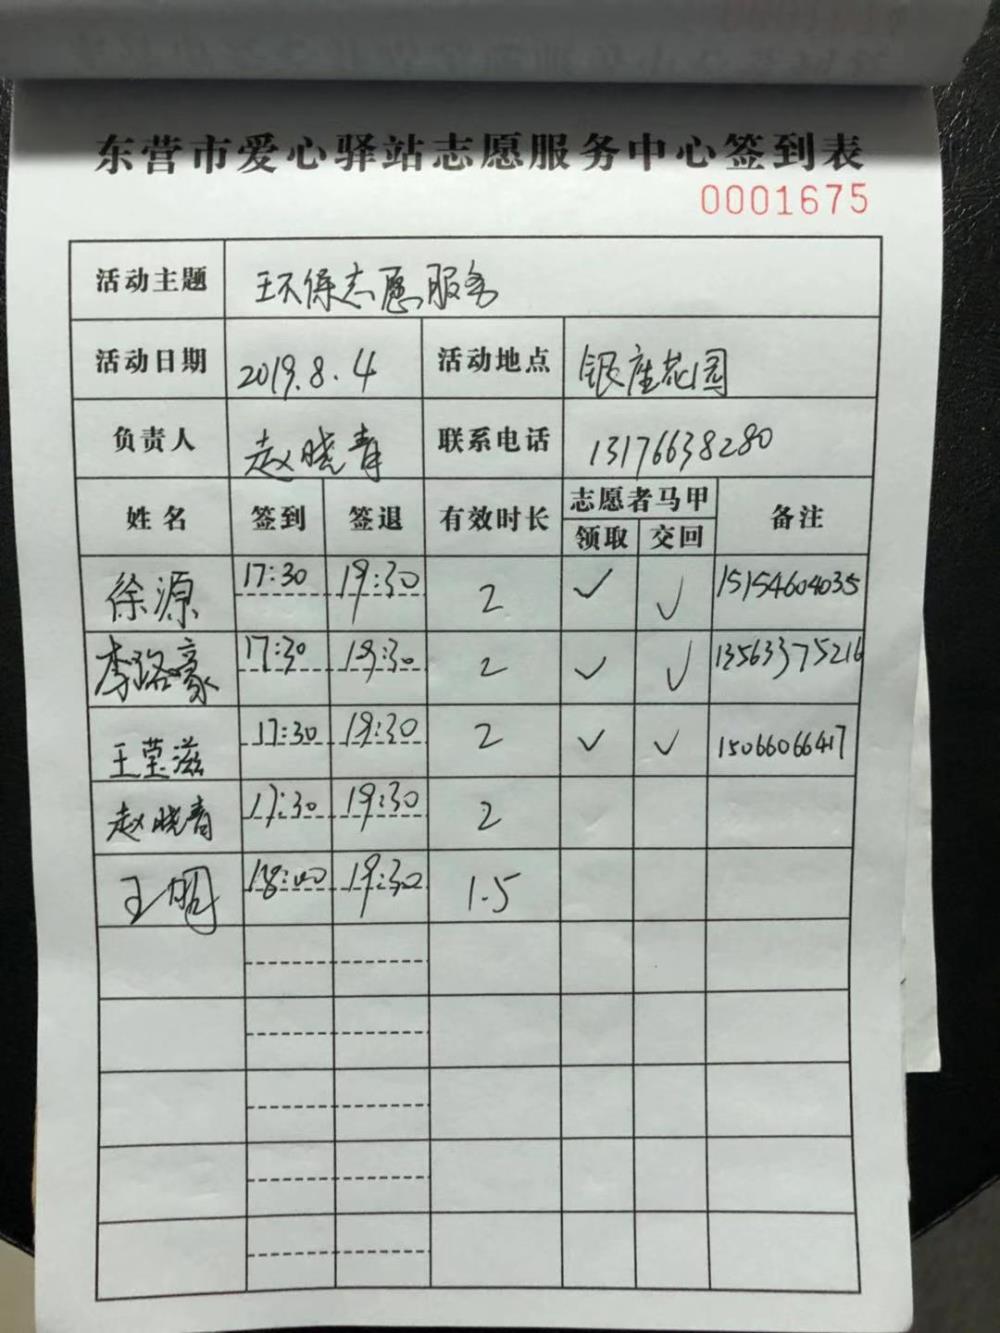 东营市爱心驿站志愿服务中心签到表
0001675
活动主题 环保志愿服务
活动日期 2019.8.4 活动地点 银座花园
负责人 赵晓青 联系电话 13176638280
姓名 签到 签退 有效时长 志愿者马甲 备注
领取 交回
徐源 17:30 19:30 2 ✓ ✓ 15154604035
李珞豪 17:30 19:30 2 ✓ ✓ 13563375216
王莹滋 17:30 19:30 2 ✓ ✓ 15066066417
赵晓青 17:30 19:30 2
王明 18:00 19:30 1.5